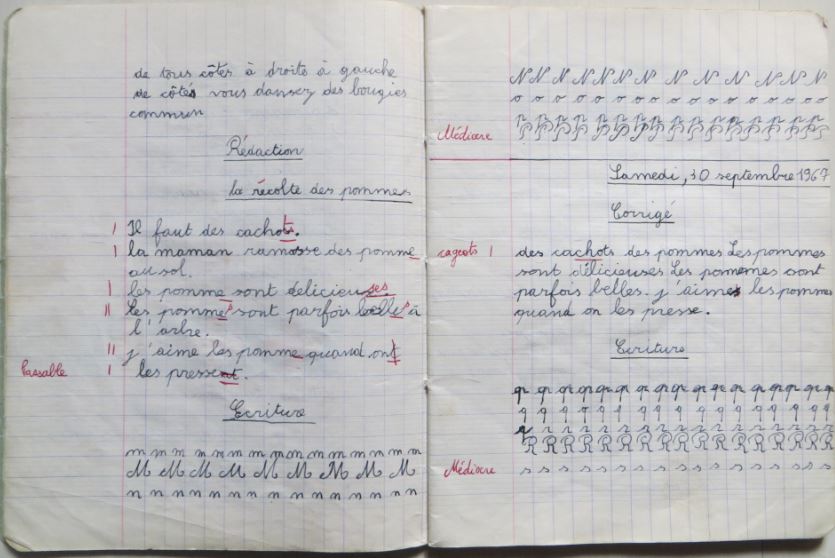 de tous côtés à droite à gauche
de côtés vous dansez des bougies
commun
Rédaction
la récolte des pommes
Il faut des cachots.
la maman ramasse des pomme
au sol.
les pomme sont délicieuses
les pommes sont parfois belles à
l'arbre.
j'aime les pomme quand ont
Passable
les pressent.
Ecriture
m m m m m m m m m m m m m m m
M M M M M M M M M
n n n n n n n n n n n n n n n
N N N N N N N N N N N N N
o o o o o o o o o o o o o o o
Médiocre
Samedi, 30 septembre 1967
Corrigé
cageots des cachots des pommes Les pommes
sont délicieuses Les pommes sont
parfois belles. j'aimes les pommes
quand on les presse.
Ecriture
q q q q q q q q q q q q q q q
r r r r r r r r r r r r r r
R R R R R R R R R R R R R R R
Médiocre s s s s s s s s s s s s s s s